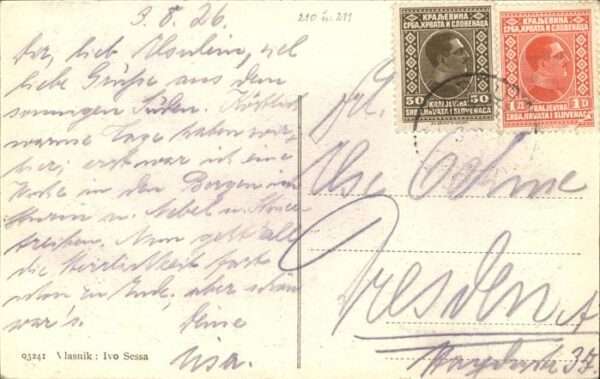 3.8.26.
210 u. 211
Dir, lieb Ilselein, viel
liebe Grüße aus dem
sonnigen Süden. Köstlich
warme Tage haben wir
hier; erst war ich eine
Woche in den Bergen im
Sturm u. Nebel u.
treiben. Nun geht all
die Herrlichkeit fast
schon zu Ende, aber schön
war's.
Deine
Lisa.
03241 Vlasnik: Ivo Sessa
КРАЉЕВИНА
СРБА, ХРВАТА И СЛОВЕНАЦА
50 50
KRALJEVINA
SRBA, HRVATA I SLOVENACA
КРАЉЕВИНА
СРБА, ХРВАТА И СЛОВЕНАЦА
1Д 1D
KRALJEVINA
SRBA, HRVATA I SLOVENACA
Frl.
Ilse
Dresden A
37.